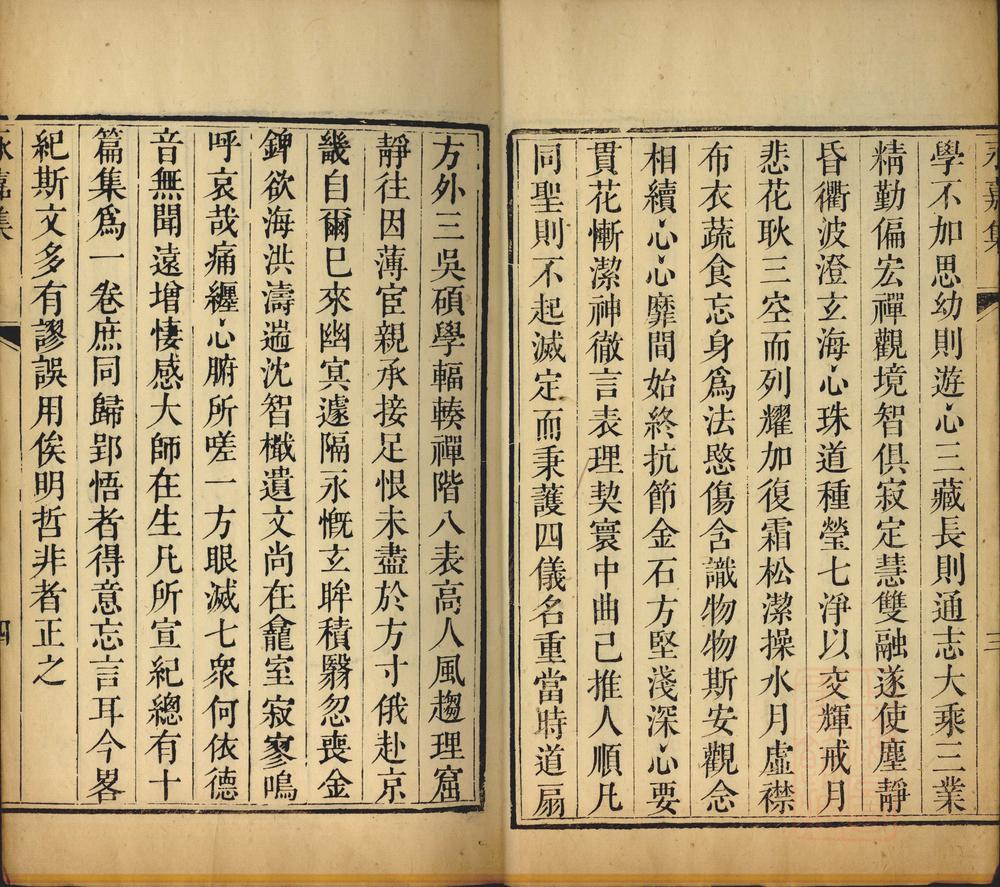 永嘉集
三
學不加思幼則遊心三藏長則通志大乘三業
精勤偏宏禪觀境智俱寂定慧雙融遂使塵靜
昏衢波澄玄海心珠道種瑩七淨以交輝戒月
悲花耿三空而列耀加復霜松潔操水月虛襟
布衣蔬食忘身爲法愍傷含識物物斯安觀念
相續心心靡間始終抗節金石方堅淺深心要
貫花慚潔神徹言表理契寰中曲己推人順凡
同聖則不起滅定而秉護四儀名重當時道扇
方外三吳碩學輻輳禪階八表高人風趨理窟
靜往因薄宦親承接足恨未盡於方寸俄赴京
畿自爾已來幽冥遽隔永慨玄眸積翳忽喪金
錍欲海洪濤遄沈智檝遺文尚在龕室寂寥嗚
呼哀哉痛纏心腑所嗟一方眼滅七衆何依德
音無聞遠增悽感大師在生凡所宣紀總有十
篇集爲一卷庶同歸郢悟者得意忘言耳今畧
紀斯文多有謬誤用俟明哲非者正之
永嘉集
四